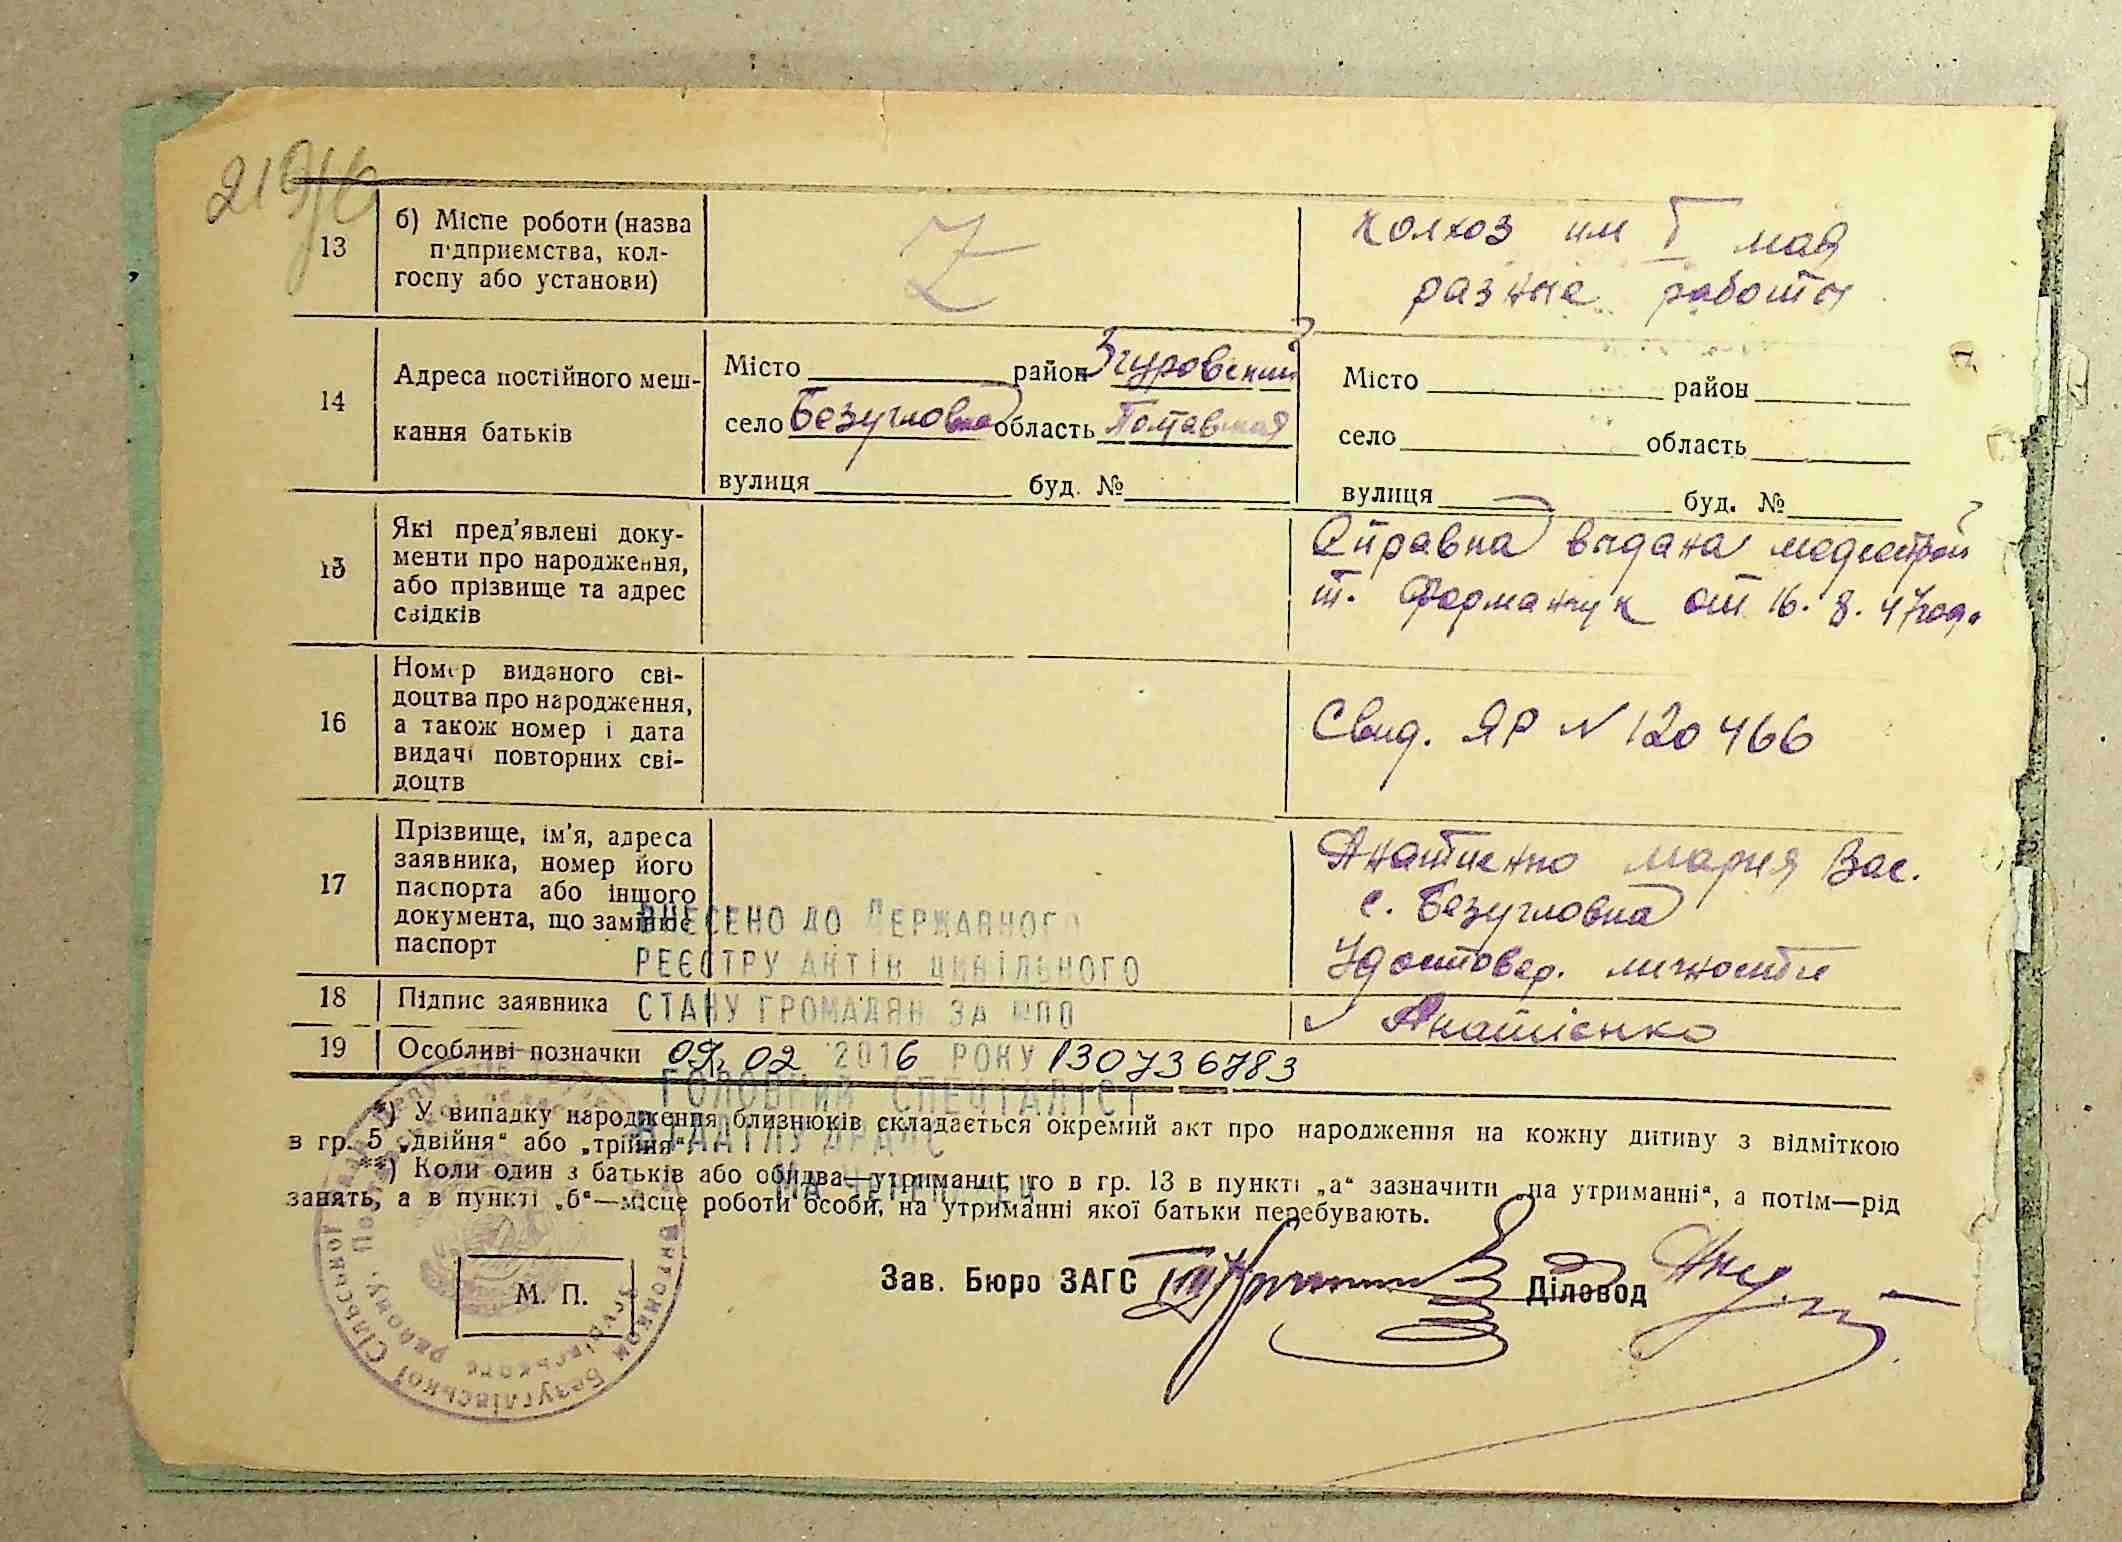 13
б) Місце роботи (назва
підприємства, кол-
госпу або установи)
Z
колхоз им I мая
разные работы
14
Адреса постійного меш-
кання батьків
Місто район Згуровский
село Безугловка область Полтавская
вулиця буд. №
Місто район
село область
вулиця буд. №
15
Які пред'явлені доку-
менти про народження,
або прізвище та адрес
свідків
Справка выдана медсестрой
т. Форманчук от 16. 8. 47 год.
16
Номер виданого сві-
доцтва про народження,
а також номер і дата
видачі повторних сві-
доцтв
Свид. ЯР N 120466
17
Прізвище, ім'я, адреса
заявника, номер його
паспорта або іншого
документа, що замінює
паспорт
Анатиенко Мария Вас.
с. Безугловка
Удостовер. личности
ВНЕСЕНО ДО ДЕРЖАВНОГО
РЕЄСТРУ АКТІВ ЦИВІЛЬНОГО
СТАНУ ГРОМАДЯН ЗА №ПП
09. 02 2016 РОКУ 130736783
ГОЛОВНИЙ СПЕЦІАЛІСТ
ВІДДІЛУ ДРАЦС
18
Підпис заявника
Анатієнко
19
Особливі позначки
*) У випадку народження близнюків складається окремий акт про народження на кожну дитину з відміткою
в гр. 5 „двійня“ або „трійня“.
**) Коли один з батьків або обидва—утриманці, то в гр. 13 в пункті „а“ зазначити „на утриманні“, а потім—рід
занять, а в пункті „б“—місце роботи особи, на утриманні якої батьки перебувають.
М. П.
Зав. Бюро ЗАГС
Діловод